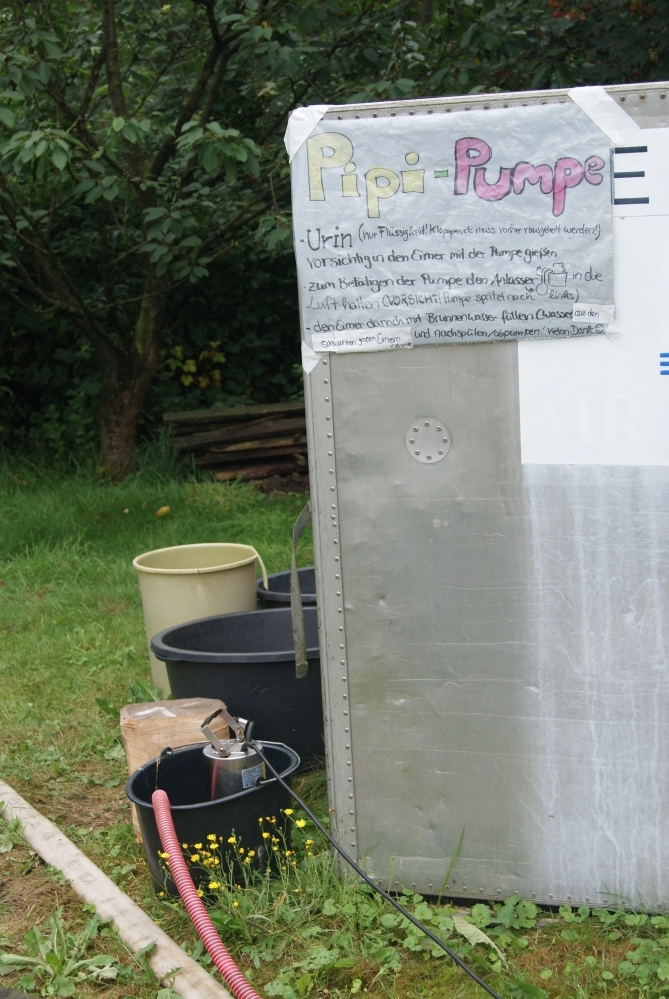 Pipi-Pumpe
- Urin (nur Flüssigkeit! Klopapier, etc muss vorher rausgeholt werden!)
vorsichtig in den Eimer mit der Pumpe gießen
- zum Betätigen der Pumpe den Anlasser in die
Luft halten (VORSICHT! Pumpe spritzt nach links)
- den Eimer danach mit Brunnenwasser füllen (Wasser aus den
schwarzen großen Eimern und nachspülen/abpumpen! Vielen Dank ☺
E
AIR